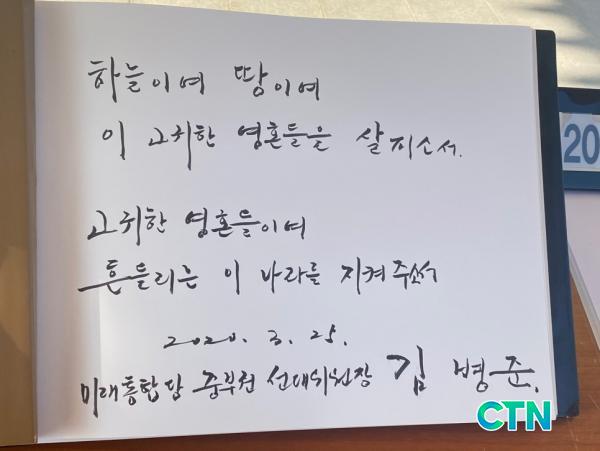 하늘이여 땅이여
이 고귀한 영혼들을 살피소서.
고귀한 영혼들이여
흔들리는 이 나라를 지켜주소서
2020. 3. 25.
미래통합당 중부권 선대위원장 김병준.
CTN
20